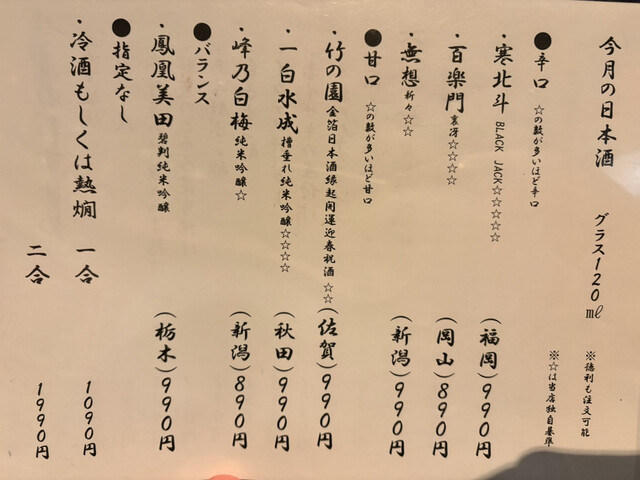 今月の日本酒 グラス120㎖
※徳利も注文可能
※☆は当店独自基準
●辛口 ☆の数が多いほど辛口
・寒北斗 BLACK JACK☆☆☆☆☆ (福岡)990円
・百楽門 裏冴☆☆☆☆ (岡山)890円
・無想 折々☆☆ (新潟)990円
●甘口 ☆の数が多いほど甘口
・竹の園 金箔日本酒縁起開運迎春祝酒 ☆☆ (佐賀)990円
・一白水成 槽垂れ純米吟醸☆☆☆☆ (秋田)990円
・峰乃白梅 純米吟醸☆ (新潟)890円
●バランス
・鳳凰美田 碧判純米吟醸 (栃木)990円
●指定なし
・冷酒もしくは熱燗 一合 1090円
二合 1990円